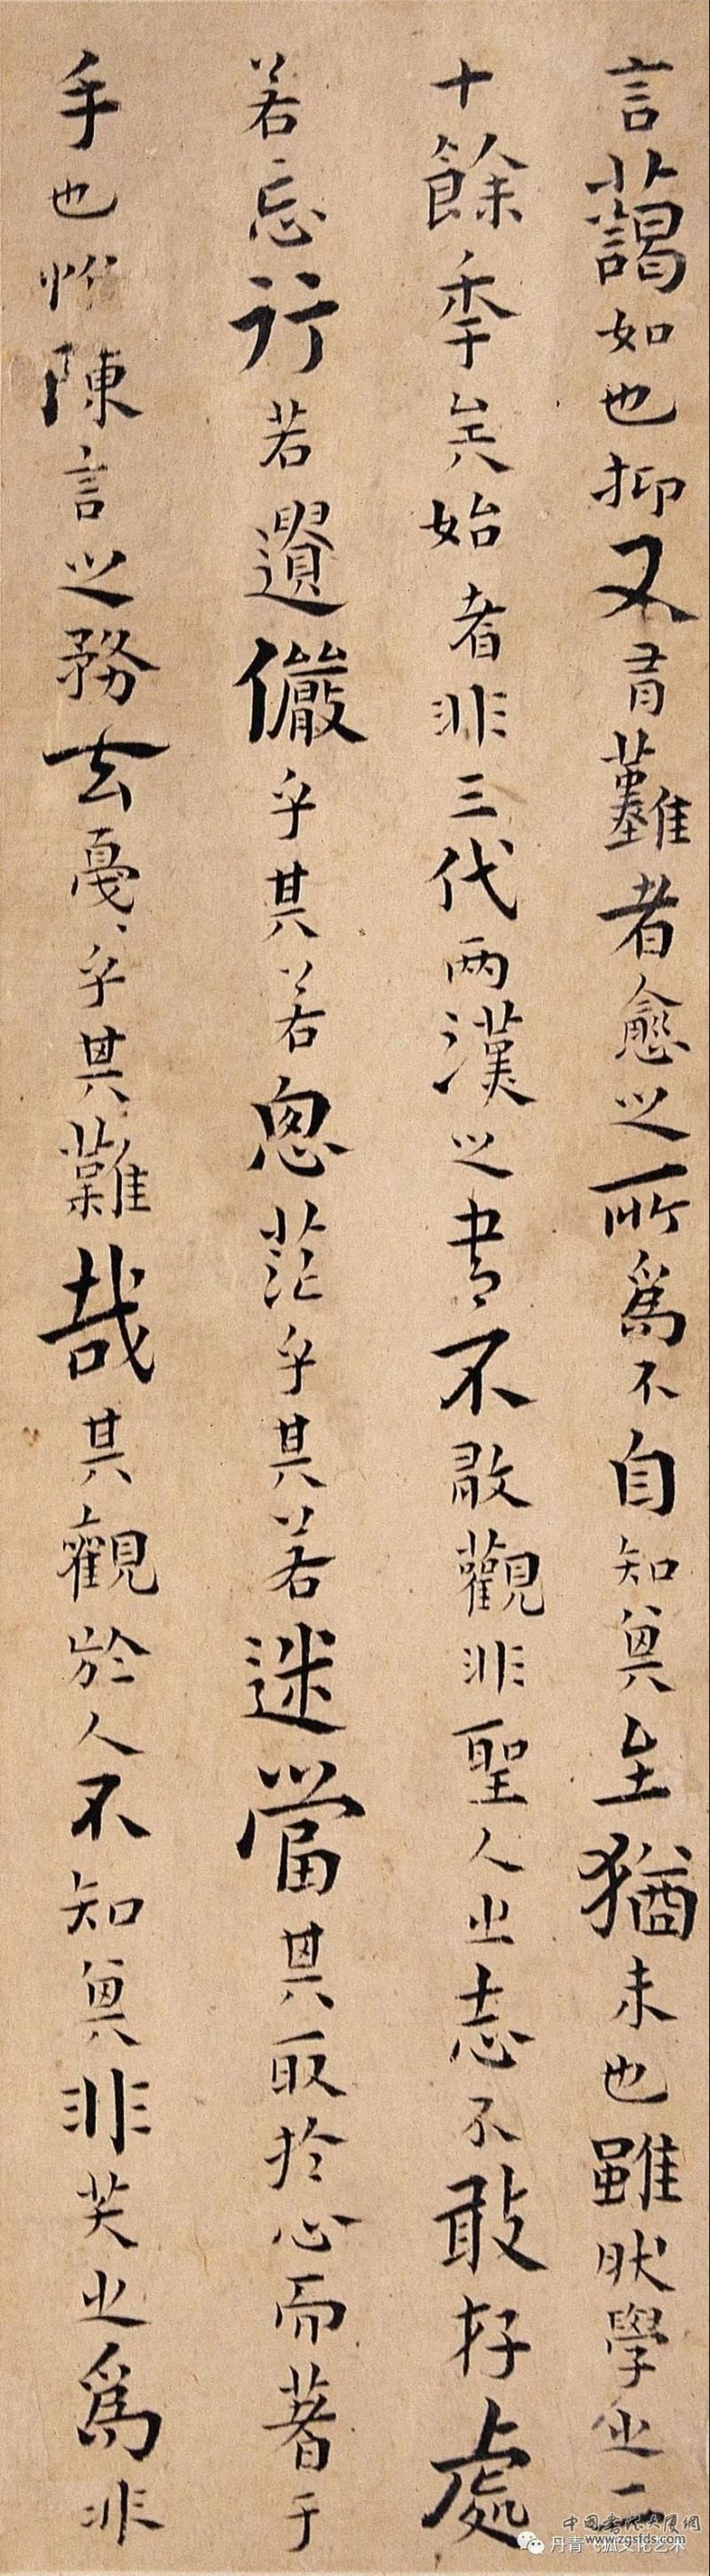 言藹如也抑又有難者愈之所為不自知其至猶未也雖然學之二
十餘年矣始者非三代兩漢之書不敢觀非聖人之志不敢存處
若忘行若遺儼乎其若思茫乎其若迷當其取於心而著于
手也惟陳言之務去戛戛乎其難哉其觀於人不知其非笑之為非
丹青飞狐文化艺术
www.zgsfds.com